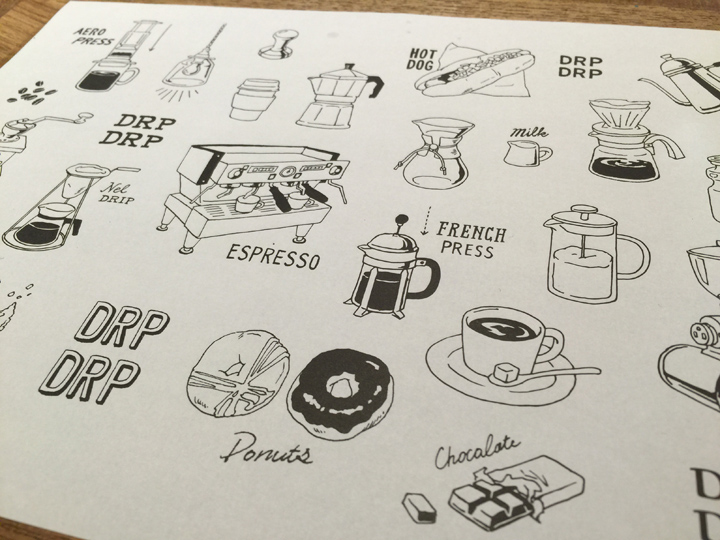 AERO
PRESS
HOT
DOG
DRP
DRP
DRP
DRP
Milk
Nel
DRIP
FRENCH
PRESS
ESPRESSO
DRP
DRP
Donuts
Chocalate